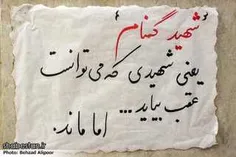 "شهید گمنام"
یعنی شهیدی که می توانست
عقب بیاید... اما ماند.
shabestan.ir
Photo: Behzad Alipoor